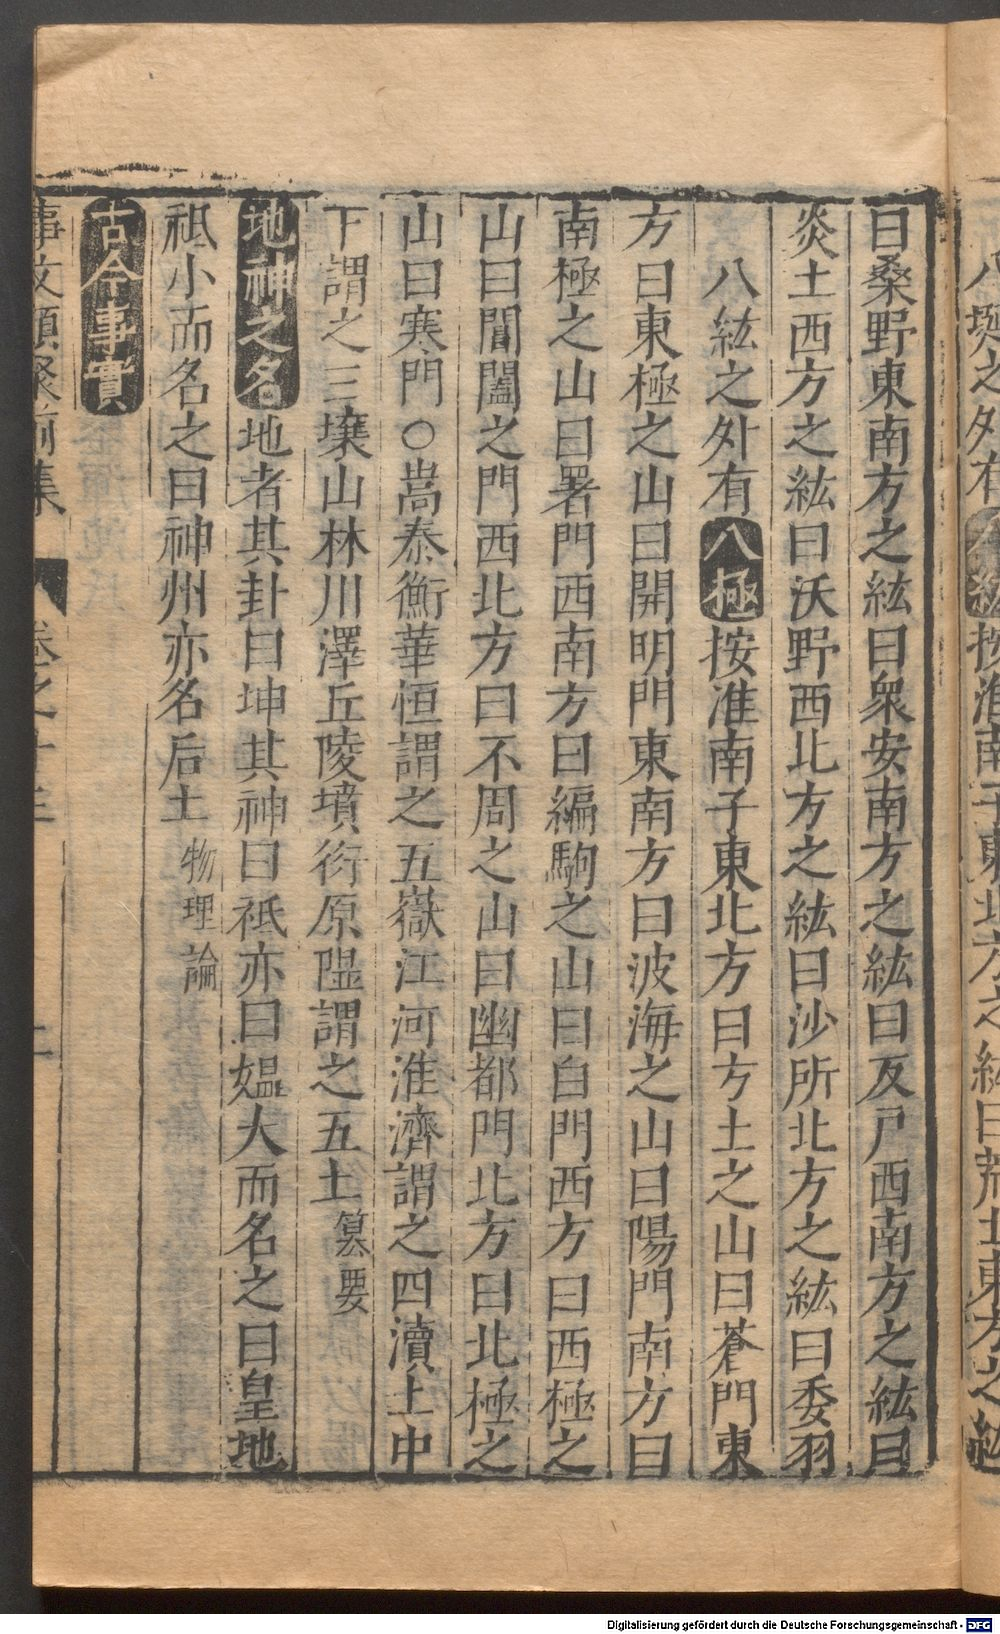 八埏之外有八紘按淮南子東北方之紘曰荒土東方之紘
曰桑野東南方之紘曰衆安南方之紘曰反戶西南方之紘曰
炎土西方之紘曰沃野西北方之紘曰沙所北方之紘曰委羽
八紘之外有八極按淮南子東北方曰方土之山曰蒼門東
方曰東極之山曰開明門東南方曰波海之山曰陽門南方曰
南極之山曰署門西南方曰編駒之山曰白門西方曰西極之
山曰閶闔之門西北方曰不周之山曰幽都門北方曰北極之
山曰寒門○嵩泰衡華恒謂之五嶽江河淮濟謂之四瀆上中
下謂之三壤山林川澤丘陵墳衍原隰謂之五土纂要
地神之名地者其卦曰坤其神曰祇亦曰媪大而名之曰皇地
祗小而名之曰神州亦名后土物理論
古今事實
事文類聚前集 卷之十三
Digitalisierung gefördert durch die Deutsche Forschungsgemeinschaft - DFG